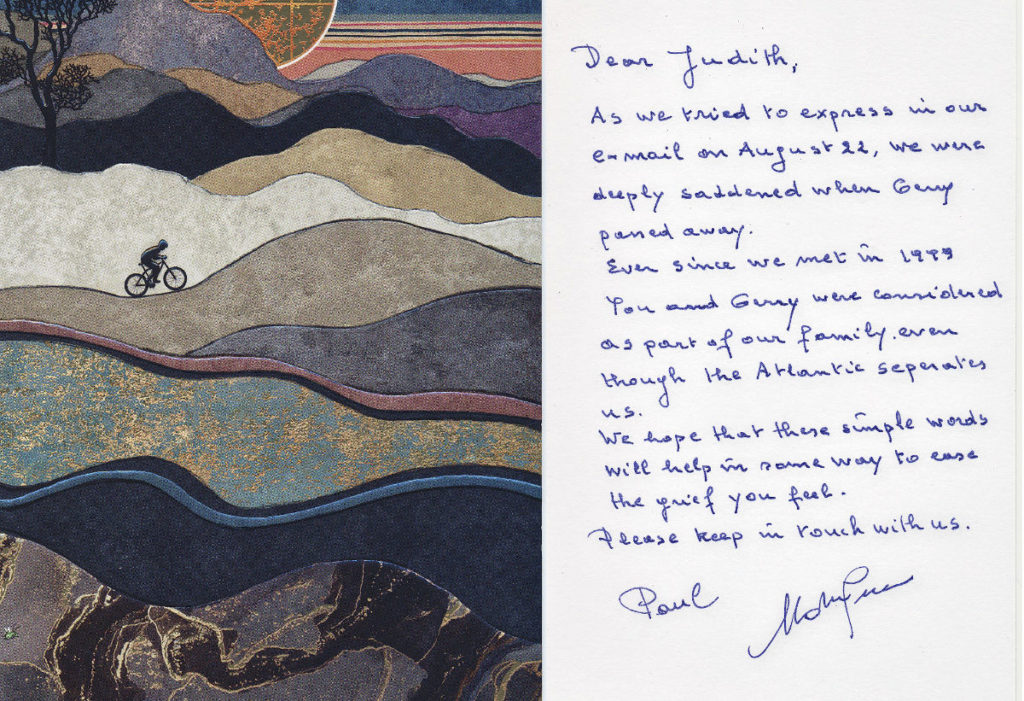 Dear Judith,
As we tried to express in our
e-mail on August 22, we were
deeply saddened when Gerry
passed away.
Ever since we met in 1999
You and Gerry were considered
as part of our family. even
though the Atlantic seperates
us.
We hope that these simple words
will help in some way to ease
the grief you feel.
Please keep in touch with us.
Paul